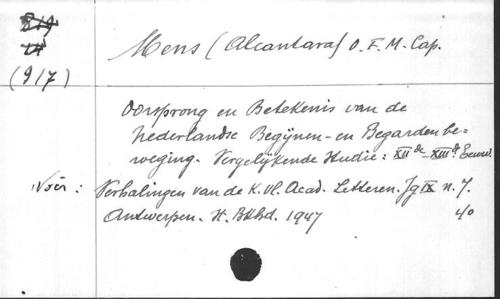 (9/7)
Mens (Alcantara) O.F.M. Cap.
Oorsprong en Betekenis van de
Nederlandse Begijnen- en Begardenbe-
weging. Vergelijkende Studie: XIIde-XIIIde Eeuw.
in: Verhalingen van de K. Vl. Acad. Letteren. Jg IX n. 7.
Antwerpen. N. Bkhd. 1947
40